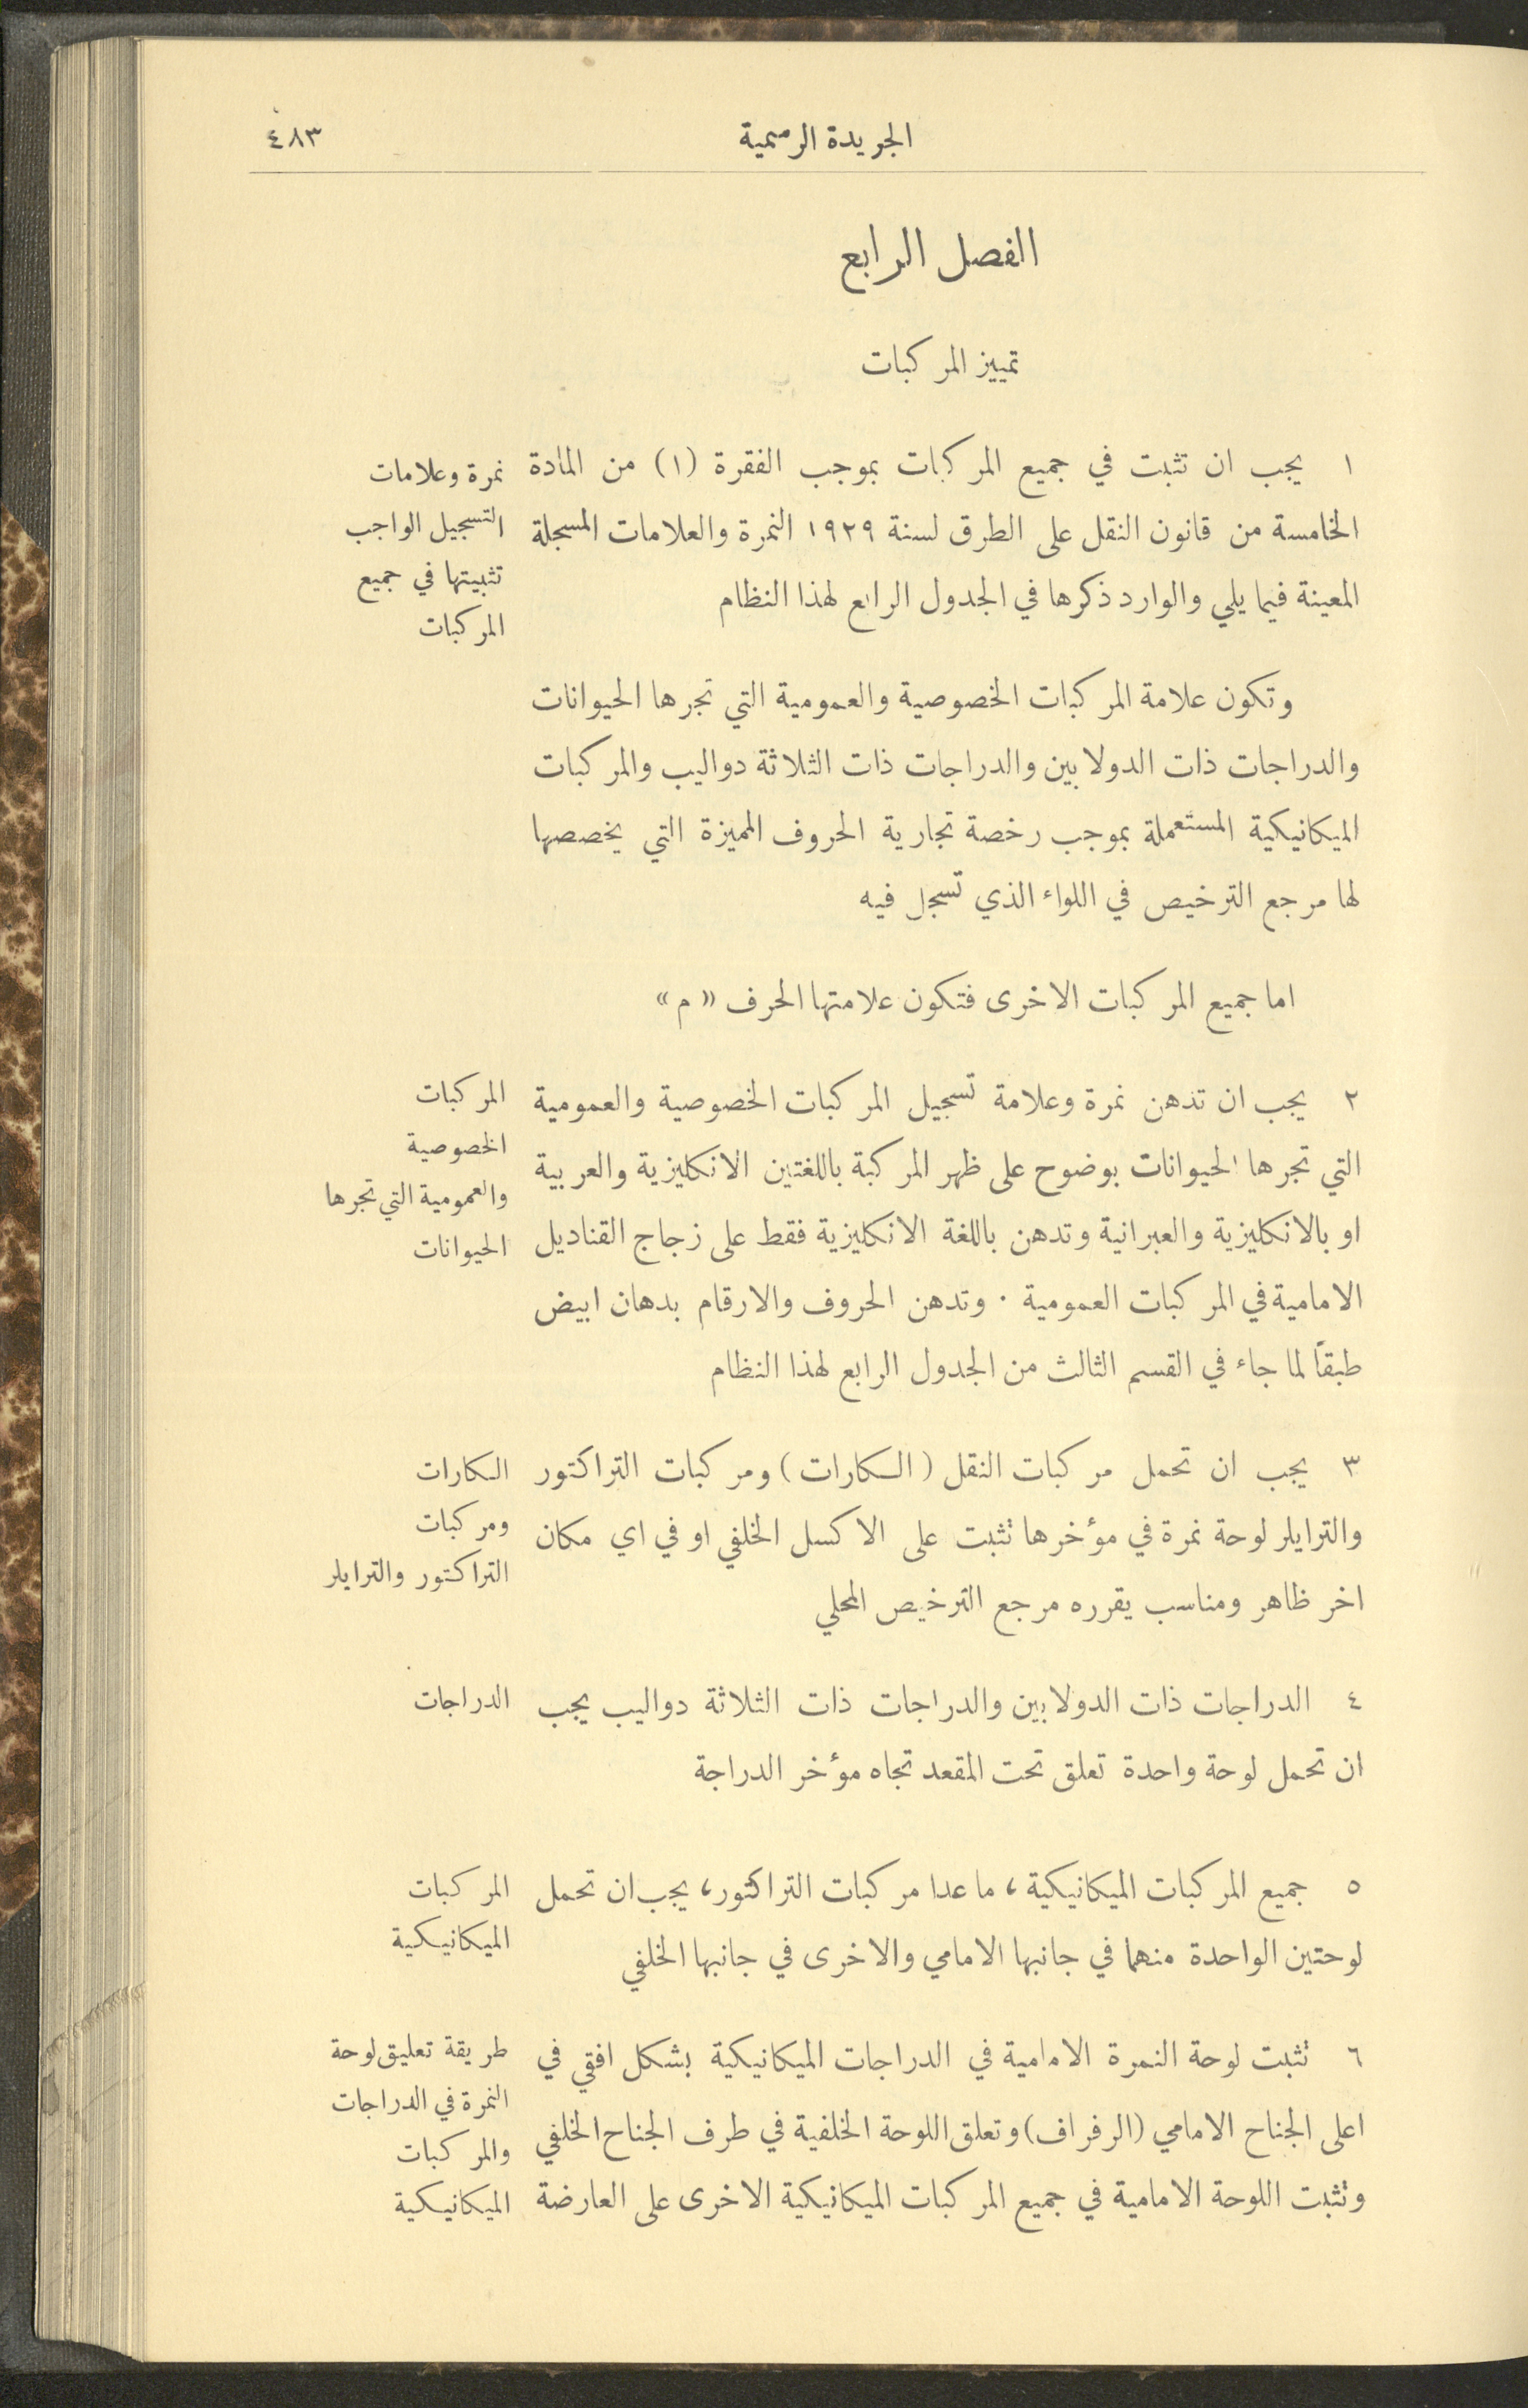 الجريدة الرسمية
٤٨٣
الفصل الرابع
تمييز المركبات
١ يجب ان تثبت في جميع المركبات بموجب الفقرة (١) من المادة
الخامسة من قانون النقل على الطرق لسنة ١٩٢٩ النمرة والعلامات المسجلة
المعينة فيما يلي والوارد ذكرها في الجدول الرابع لهذا النظام
نمرة وعلامات
التسجيل الواجب
تثبيتها في جميع
المركبات
وتكون علامة المركبات الخصوصية والعمومية التي تجرها الحيوانات
والدراجات ذات الدولابين والدراجات ذات الثلاثة دواليب والمركبات
الميكانيكية المستعملة بموجب رخصة تجارية الحروف المميزة التي يخصصها
لها مرجع الترخيص في اللواء الذي تسجل فيه
اما جميع المركبات الاخرى فتكون علامتها الحرف « م »
٢ يجب ان تدهن نمرة وعلامة تسجيل المركبات الخصوصية والعمومية
التي تجرها الحيوانات بوضوح على ظهر المركبة باللغتين الانكليزية والعربية
او بالانكليزية والعبرانية وتدهن باللغة الانكليزية فقط على زجاج القناديل
الامامية في المركبات العمومية ٠ وتدهن الحروف والارقام بدهان ابيض
طبقاً لما جاء في القسم الثالث من الجدول الرابع لهذا النظام
المركبات
الخصوصية
والعمومية التي تجرها
الحيوانات
٣ يجب ان تحمل مركبات النقل (السكارات) ومركبات التراكتور
والترايلر لوحة نمرة في مؤخرها تثبت على الاكسل الخلفي او في اي مكان
اخر ظاهر ومناسب يقرره مرجع الترخيص المحلي
السكارات
ومركبات
التراكتور والترايلر
٤ الدراجات ذات الدولابين والدراجات ذات الثلاثة دواليب يجب
ان تحمل لوحة واحدة تعلق تحت المقعد تجاه مؤخر الدراجة
الدراجات
٥ جميع المركبات الميكانيكية، ما عدا مركبات التراكتور، يجب ان تحمل
لوحتين الواحدة منهما في جانبها الامامي والاخرى في جانبها الخلفي
المركبات
الميكانيكية
٦ تثبت لوحة النمرة الامامية في الدراجات الميكانيكية بشكل افقي في
اعلى الجناح الامامي (الرفراف) وتعلق اللوحة الخلفية في طرف الجناح الخلفي
وتثبت اللوحة الامامية في جميع المركبات الميكانيكية الاخرى على العارضة
طريقة تعليق لوحة
النمرة في الدراجات
والمركبات
الميكانيكية